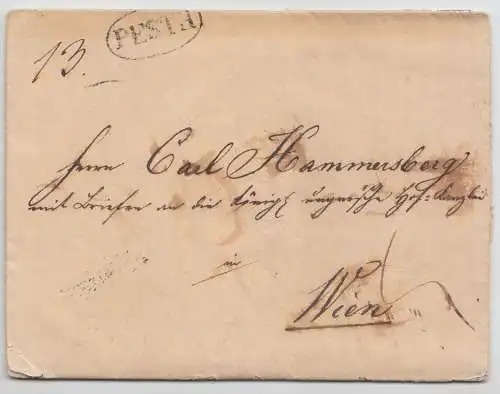 PESTH
13.
Herrn Carl Hammersberg
mit Briefen an die königl ungarische Hof=Kanzlei
in
Wien